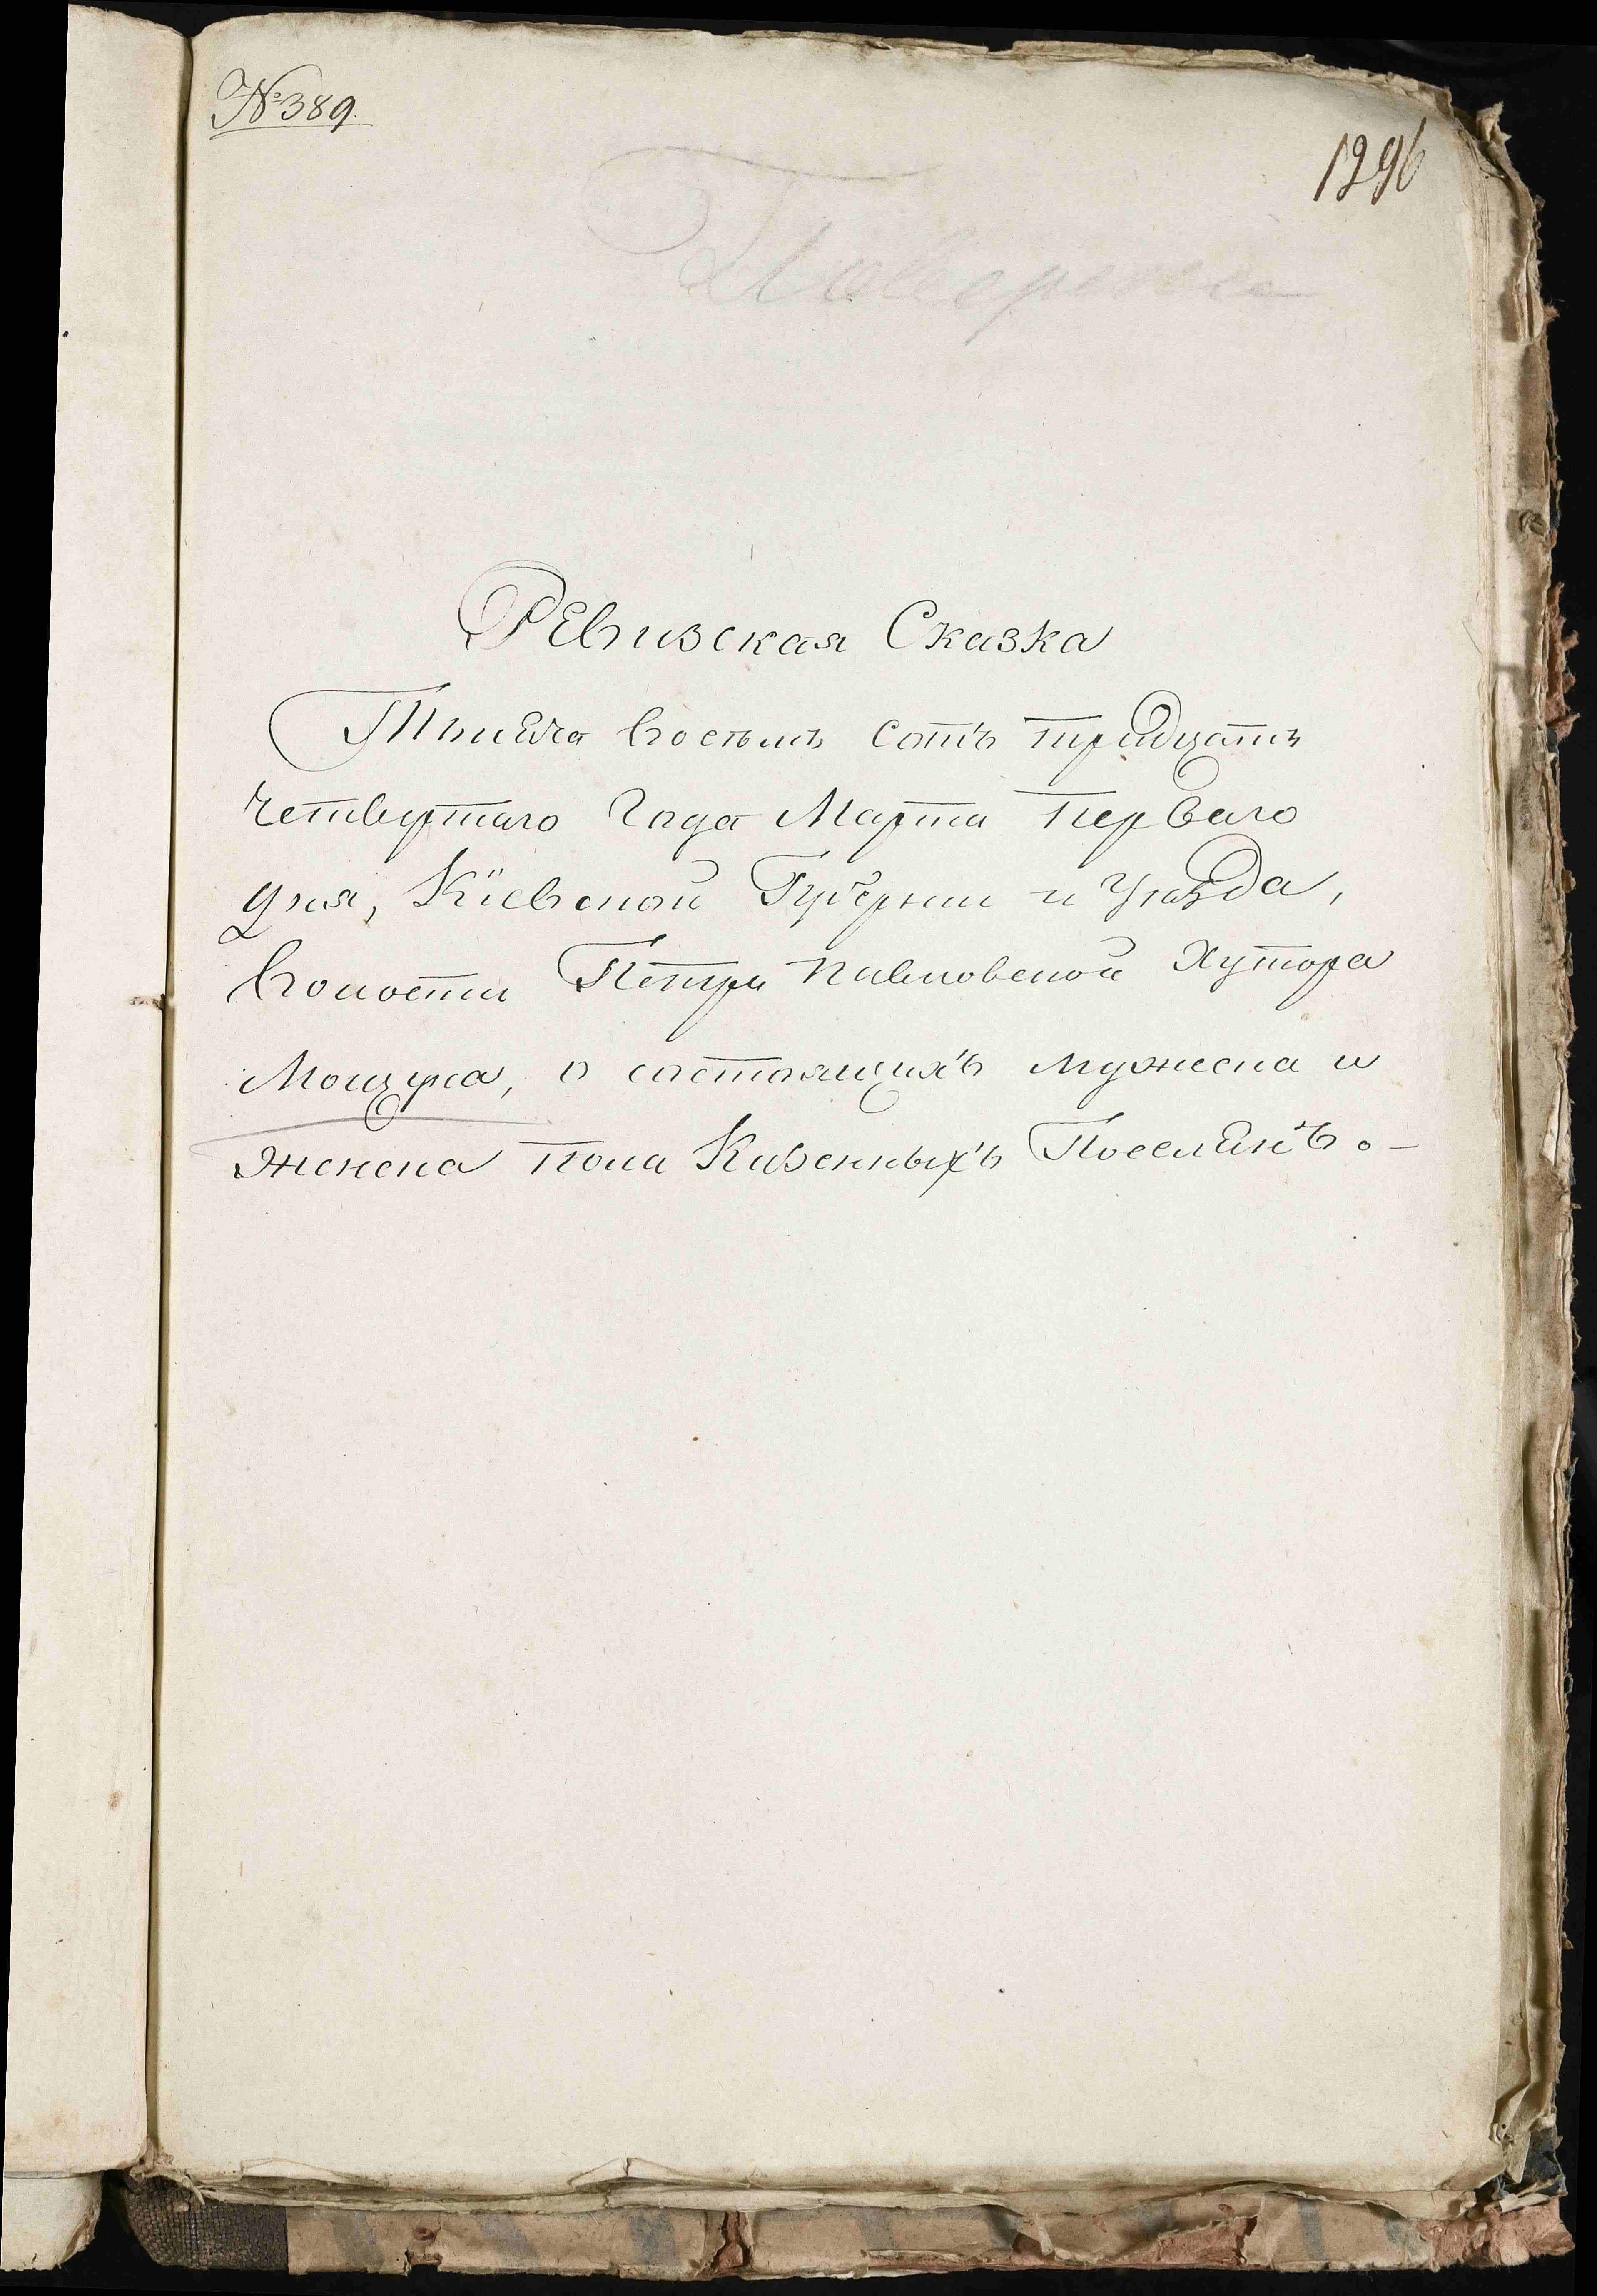 № 389.
1296
Повѣрена
Ревизская Сказка
Тысяча восемь сотъ тридцать
четвертаго Года Марта первого
дня, Кіевской Губернии и Уѣзда,
волости Петро Павловской Хутора
Мощуна, о состоящихъ мужеска и
женска пола Казенныхъ Поселянъ. —